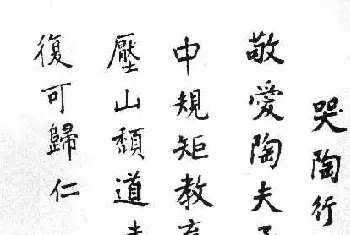 哭陶行
敬愛陶夫
中規矩教
壓山頹道
復可歸仁